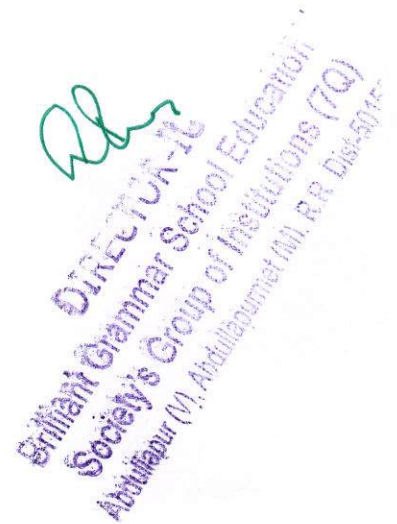 DIRECTOR-IC
Brilliant Grammar School Education
Society's Group of Institutions (7Q)
Abdullapur (V), Abdullapurmet (M), R.R. Dist-5015